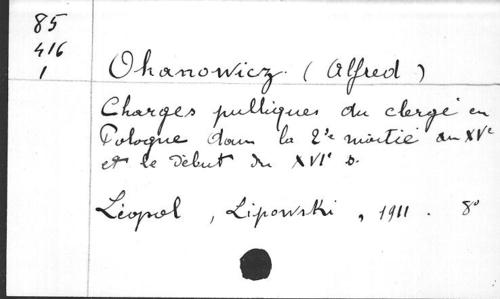 85
416
1
Ohanowicz. (Alfred)
Charges pulliques du clergé en
Pologne dans la 2e moitié du XVe
et le début du XVIe s.
Léopol, Lipowski, 1911. 8°